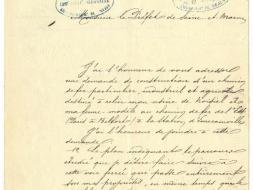 Monsieur le Préfet de Seine et Marne,
J'ai l'honneur de vous adresser
une demande de construction d'un chemin
de fer particulier, industriel et agricole
destiné à relier mon usine de et
ma ferme modèle au chemin de fer de l'Est
(Paris à Belfort) à la Station d'Emerainville
J'ai l'honneur de joindre à cette
demande
1° Le plan indiquant le parcours
que je désire faire suivre à
cette voie ferrée qui passe entièrement
sur mes propriétés, en même temps que le